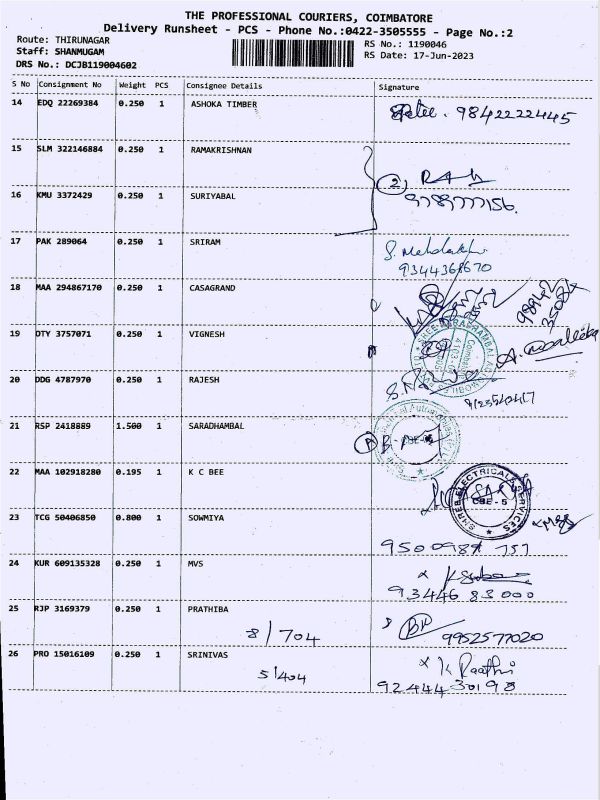 THE PROFESSIONAL COURIERS, COIMBATORE
Delivery Runsheet - PCS - Phone No.:0422-3505555 - Page No.:2
Route: THIRUNAGAR
RS No.: 1190046
Staff: SHANMUGAM
RS Date: 17-Jun-2023
DRS No.: DCJB119004602
S No Consignment No Weight PCS Consignee Details Signature
14 EDQ 22269384 0.250 1 ASHOKA TIMBER
9842222445
15 SLM 322146884 0.250 1 RAMAKRISHNAN
2
16 KMU 3372429 0.250 1 SURIYABAL
9789777156.
17 PAK 289064 0.250 1 SRIRAM
9344368670
18 MAA 294867170 0.250 1 CASAGRAND
19 DTY 3757071 0.250 1 VIGNESH
20 DDG 4787970 0.250 1 RAJESH
21 RSP 2418889 1.500 1 SARADHAMBAL
22 MAA 102918280 0.195 1 K C BEE
SHREE ELECTRICALS SERVICES
CBE - 5
23 TCG 50406850 0.800 1 SOWMIYA
24 KUR 609135328 0.250 1 MVS
93446 83000
25 RJP 3169379 0.250 1 PRATHIBA
B/704
9952577020
26 PRO 15016109 0.250 1 SRINIVAS
5/404
K Raathi
92444 30198